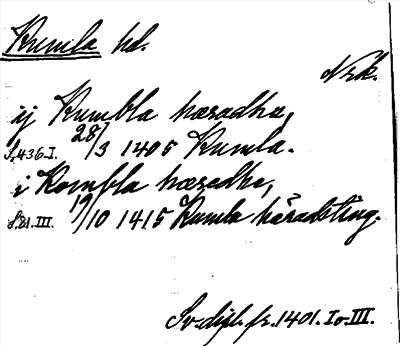 Kumla hd.
Nrk.
ij Kumbla hæradhe,
S.436.I. 28/3 1405 Kumla.
i Kombla hæredhe,
S.81.III. 19/10 1415 Kumla häradsting.
Sv. dipl. fr. 1401. I o. III.